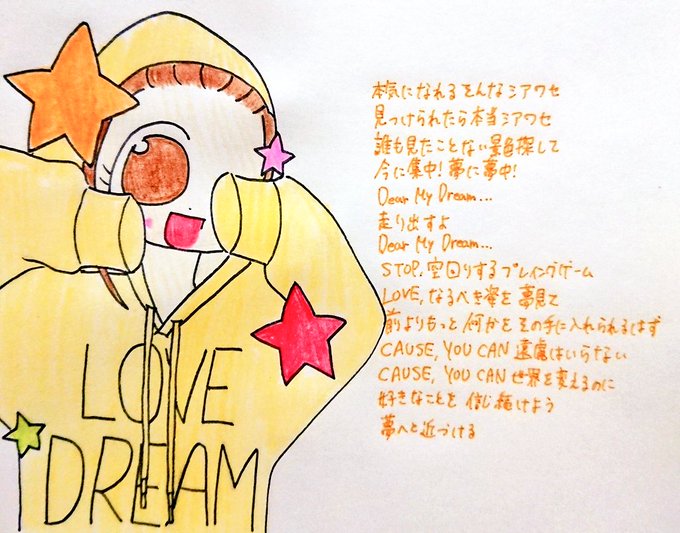 LOVE
DREAM
本気になれるそんなシアワセ
見つけられたら本当シアワセ
誰も見たことない景色探して
今に集中!夢に夢中!
Dear My Dream...
走り出すよ
Dear My Dream...
STOP,空回りするプレイングゲーム
LOVE,なるべき姿を夢見て
前よりもっと何かをその手に入れられるはず
CAUSE,YOU CAN 遠慮はいらない
CAUSE,YOU CAN 世界を変えるのに
好きなことを信じ続けよう
夢へと近づける